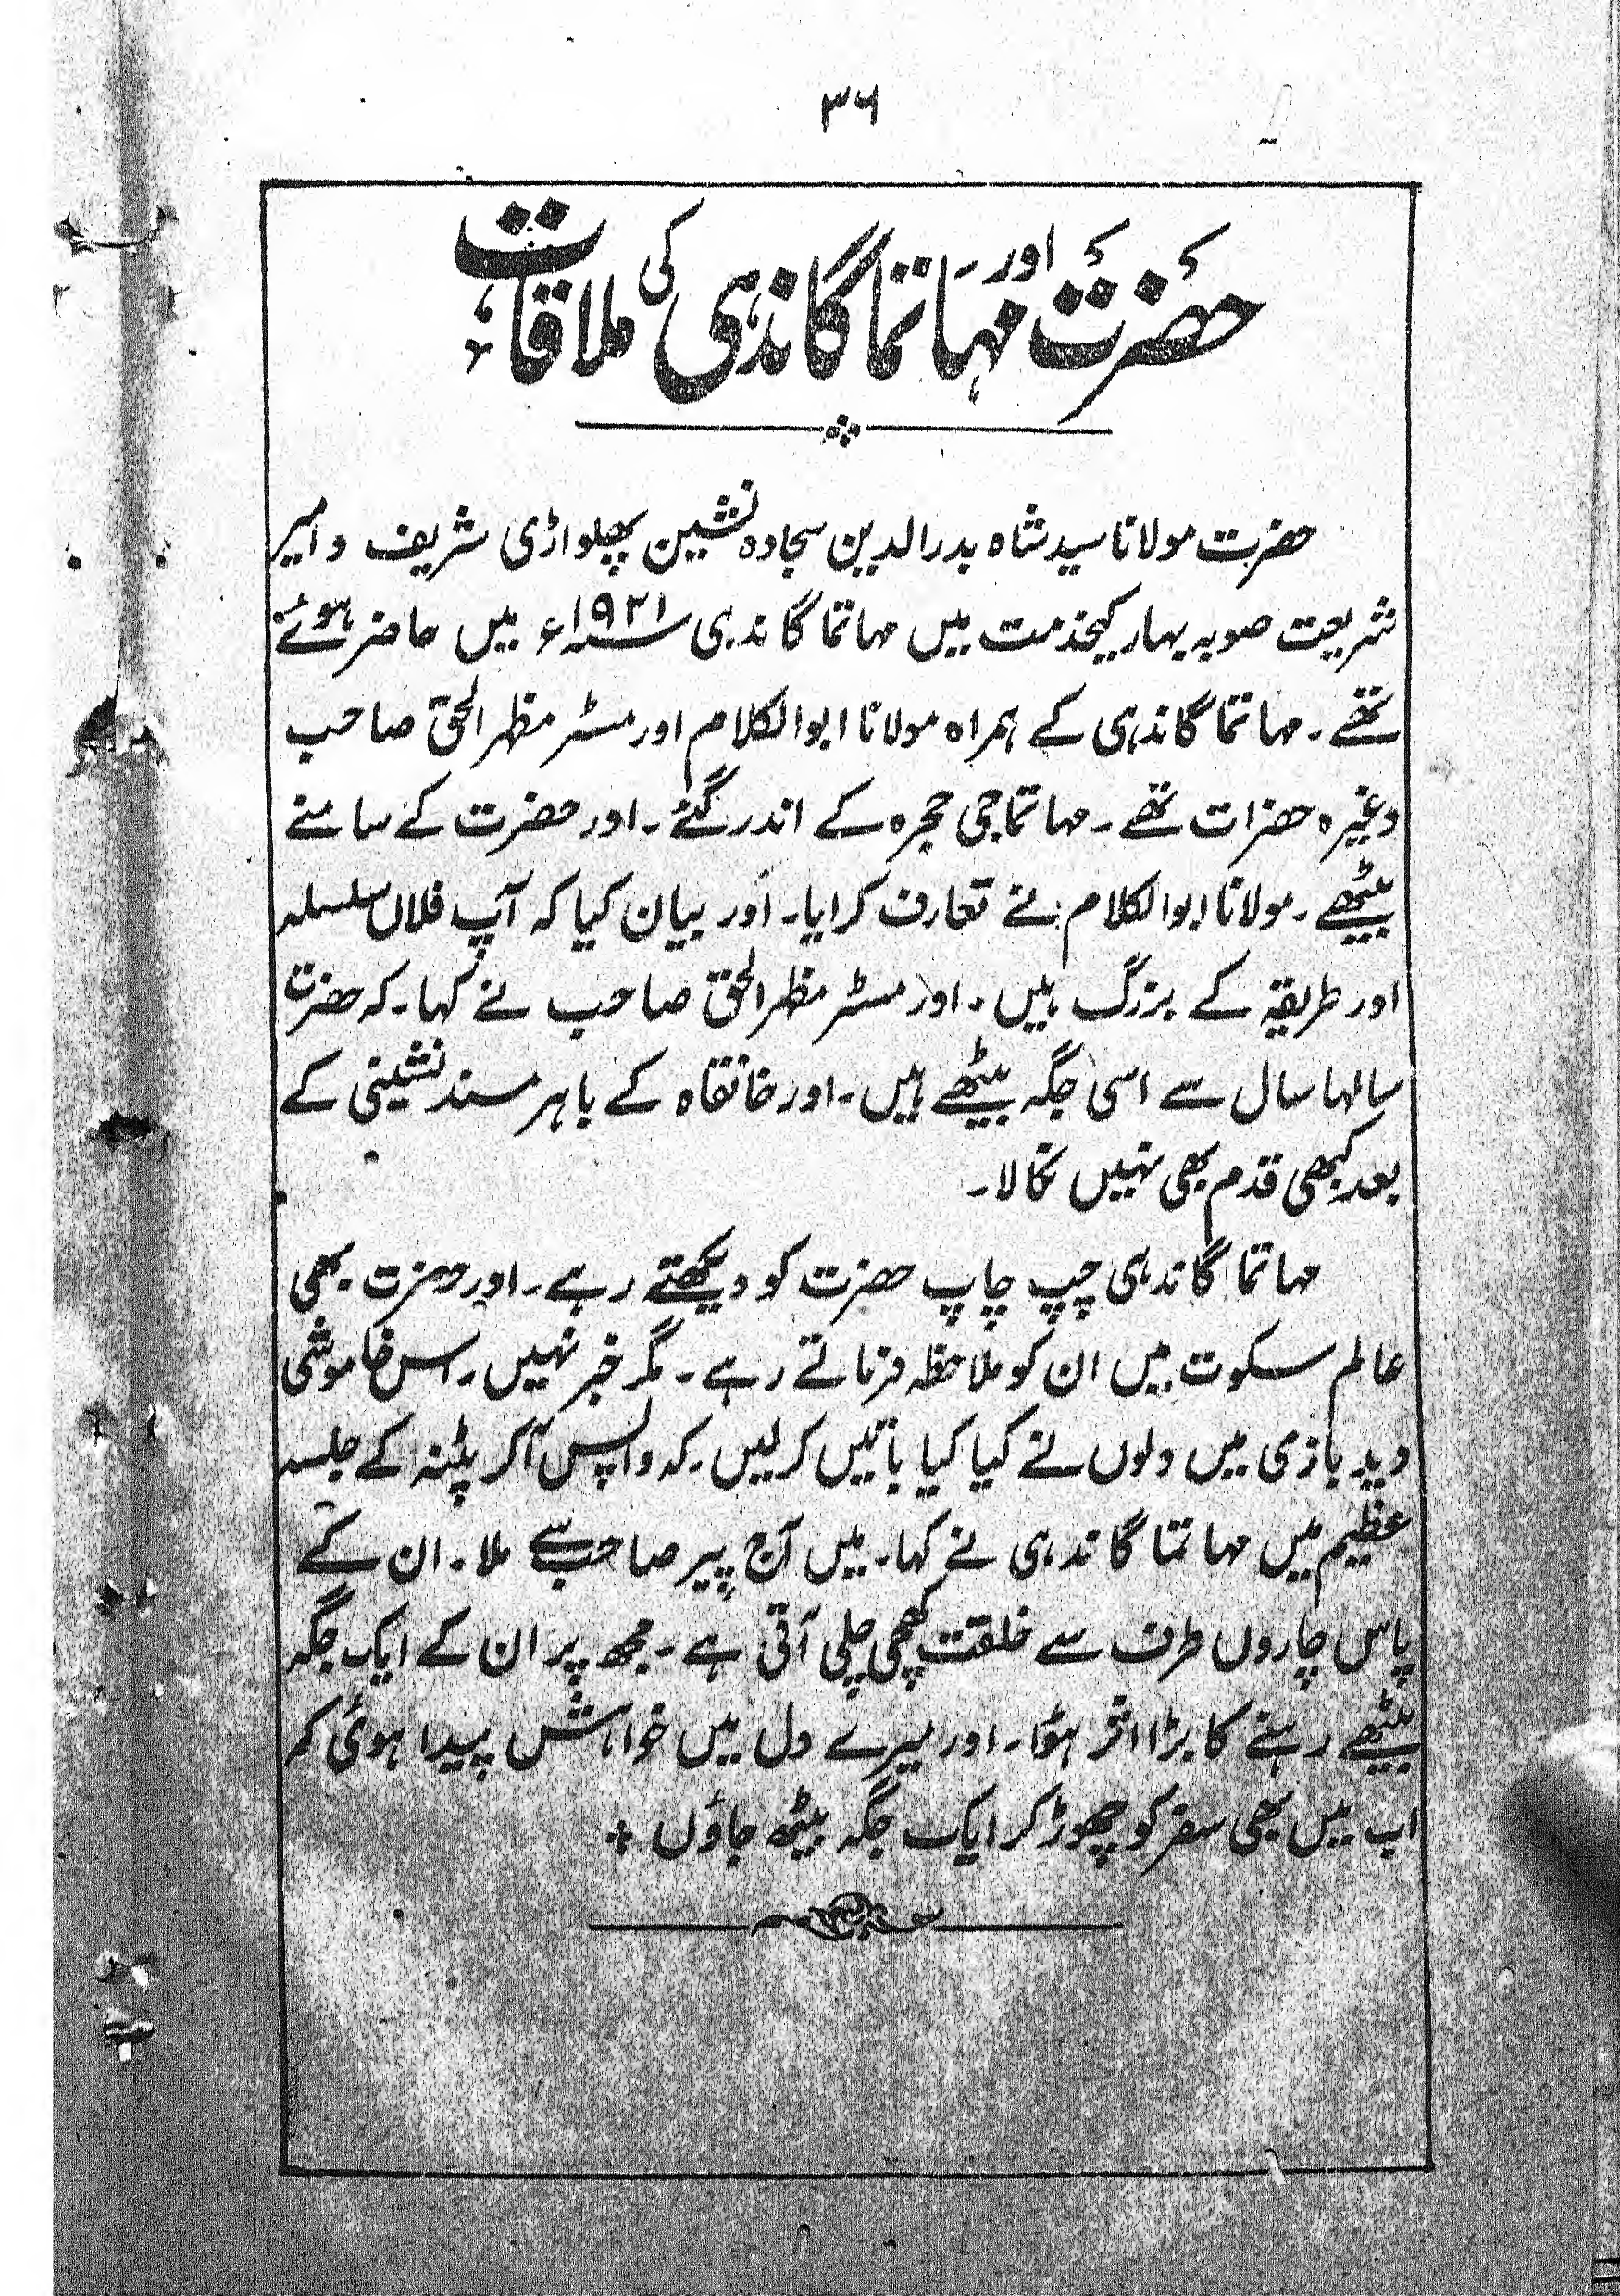 ۳۶
حضرت اور مہاتما گاندہی کی ملاقات
حضرت مولانا سید شاہ بدرالدین سجادہ نشین پھلواڑی شریف و امیر
شریعت صوبہ بہار کیخدمت میں مہاتما گاندہی سنہ ۱۹۲۱ء میں حاضر ہوئے
تھے۔ مہاتما گاندہی کے ہمراہ مولانا ابوالکلام اور مسٹر مظہرالحق صاحب
وغیرہ حضرات تھے۔ مہاتما جی حجرہ کے اندر گئے۔ اور حضرت کے سامنے
بیٹھے۔ مولانا ابوالکلام نے تعارف کرایا۔ اور بیان کیا کہ آپ فلاں سلسلہ
اور طریقہ کے بزرگ ہیں۔ اور مسٹر مظہرالحق صاحب نے کہا۔ کہ حضرت
سالہا سال سے اسی جگہ بیٹھے ہیں۔ اور خانقاہ کے باہر مسند نشینی کے
بعد کبھی قدم بھی نہیں نکالا۔
مہاتما گاندہی چپ چاپ حضرت کو دیکھتے رہے۔ اور حضرت بھی
عالم سکوت میں ان کو ملاحظہ فرماتے رہے۔ مگر خبر نہیں۔ اس خاموشی
دید بازی میں دلوں نے کیا کیا باتیں کرلیں۔ کہ واپس آکر پٹنہ کے جلسہ
عظیم میں مہاتما گاندہی نے کہا۔ میں آج پیر صاحب سے ملا۔ ان کے
پاس چاروں طرف سے خلقت کھچی چلی آتی ہے۔ مجھ پر ان کے ایک جگہ
بیٹھے رہنے کا بڑا اثر ہؤا۔ اور میرے دل میں خواہش پیدا ہوئی کہ
اب میں بھی سفر کو چھوڑ کر ایک جگہ بیٹھ جاؤں +